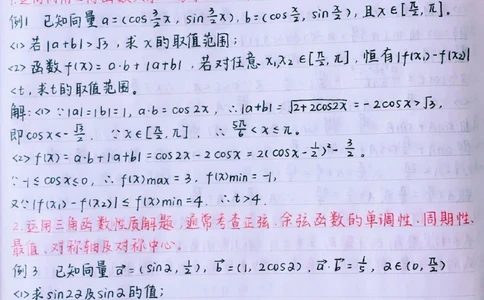 例1 已知向量 a=(cos 3/2 x, sin 3/2 x), b=(cos x/2, sin x/2), 且 x∈[π/2, π]。
<1> 若 |a+b|>√3, 求 x 的取值范围;
<2> 函数 f(x)=a·b+|a+b|, 若对任意 x₁,x₂∈[π/2, π], 恒有 |f(x₁)-f(x₂)|
<t, 求 t 的取值范围。
解: <1> ∵|a|=|b|=1, a·b=cos2x, ∴|a+b|=√2+2cos2x=-2cosx>√3,
即 cosx<-√3/2. ∵x∈[π/2, π], ∴5π/6<x≤π。
<2> f(x)=a·b+|a+b|=cos2x-2cosx=2(cosx-1/2)²-3/2。
∵-1≤cosx≤0, ∴f(x)max=3, f(x)min=-1,
又∵|f(x₁)-f(x₂)|≤f(x)min=4, ∴t>4.
2.运用三角函数性质解题,通常考查正弦、余弦函数的单调性、周期性、
最值、对称轴及对称中心。
例3 已知向量 a⃗=(sin2, 1/2), b⃗=(1, 2cos2), a⃗·b⃗=1/5, 2∈(0, π/2)
<1> 求 sin22及sin2的值;